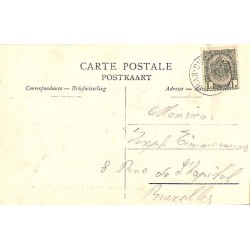 CARTE POSTALE
POSTKAART
Correspondance — Briefwisseling
Adresse — Adres
Monsieur
Joseph Timmermans
8 Rue de l'Hopital
Bruxelles